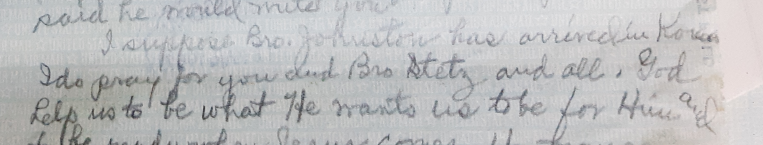 said he would write you.
I suppose Bro. Johnston has arrived in Korea
I do pray for you and Bro Stetz and all. God
help us to be what He wants us to be for Him and
be ready when Jesus comes.